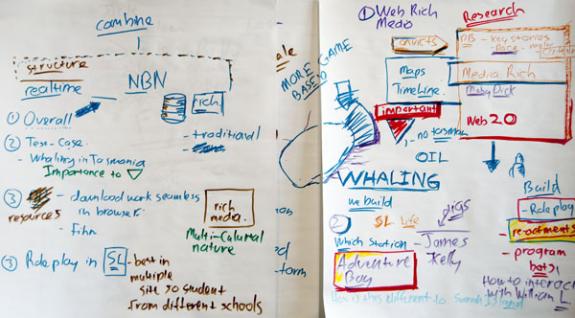 combine
structure
realtime
NBN
rich
① Overall
② Test-Case.
- Whaling in Tasmania
Importance to
- traditional
③
resources
- download work seamless
in browser.
- Film
rich
media.
Multi-Calumal
nature
③ Roleplay in SL - best in
multiple
site so student
from different schools
MORE GAME
BASED
① Web Rich
Media
Research
Maps
TimeLine.
Media Rich
Moby Dick
Web 2.0
important
OIL
WHALING
we build
②
SL Life
jigs
Which Station
- James
Kelly
Adventure
Bay
Build
- Roleplay
- program
bots!
How to interact
with William L
how is this different to Sarah Island